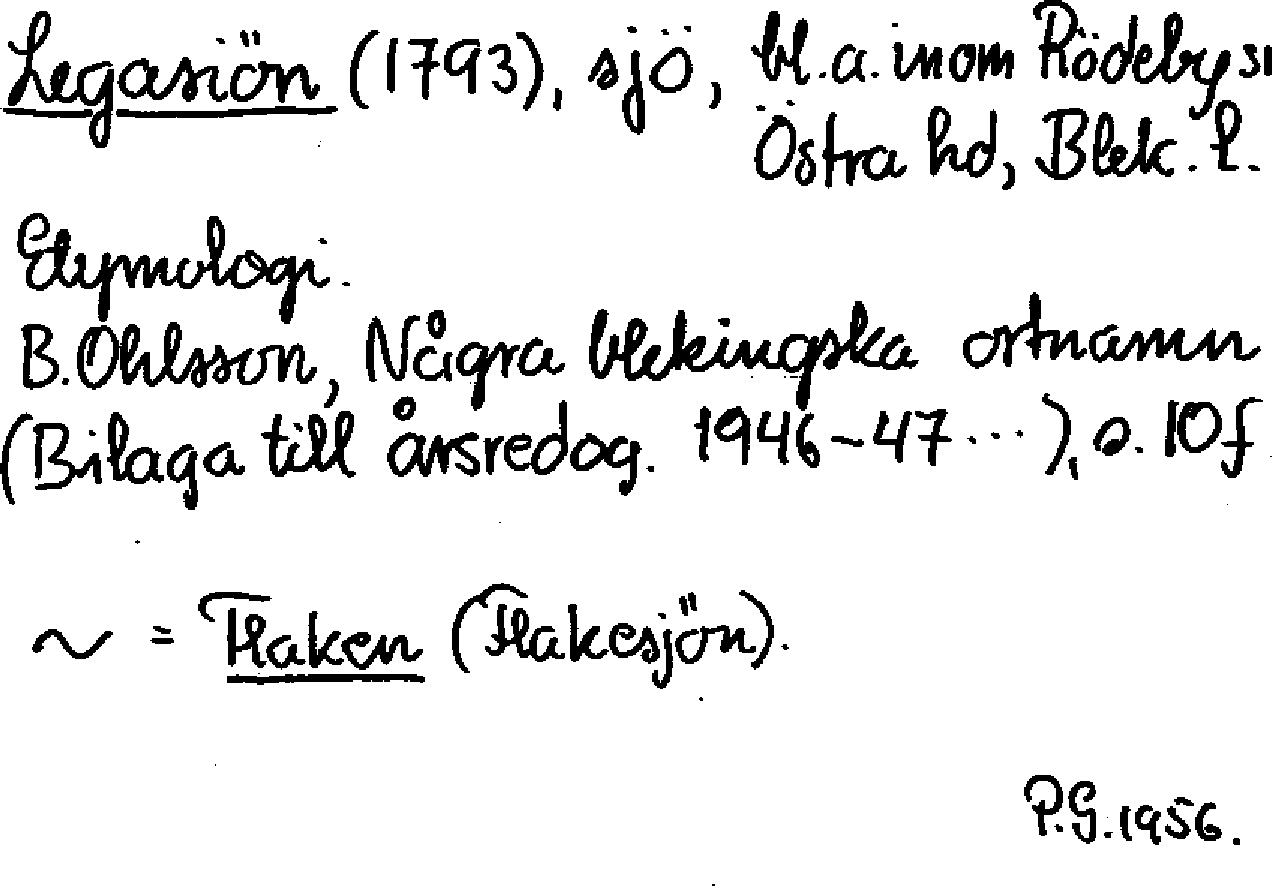 Legasiön (1793), sjö, bl.a. inom Rödeby
Östra hd, Blek. l.
Etymologi.
B. Ohlsson, Några blekingska ortnamn
(Bilaga till årsredog. 1946-47 ...), s. 10f
~ = Flaken (Flakesjön).
P.G. 1956.